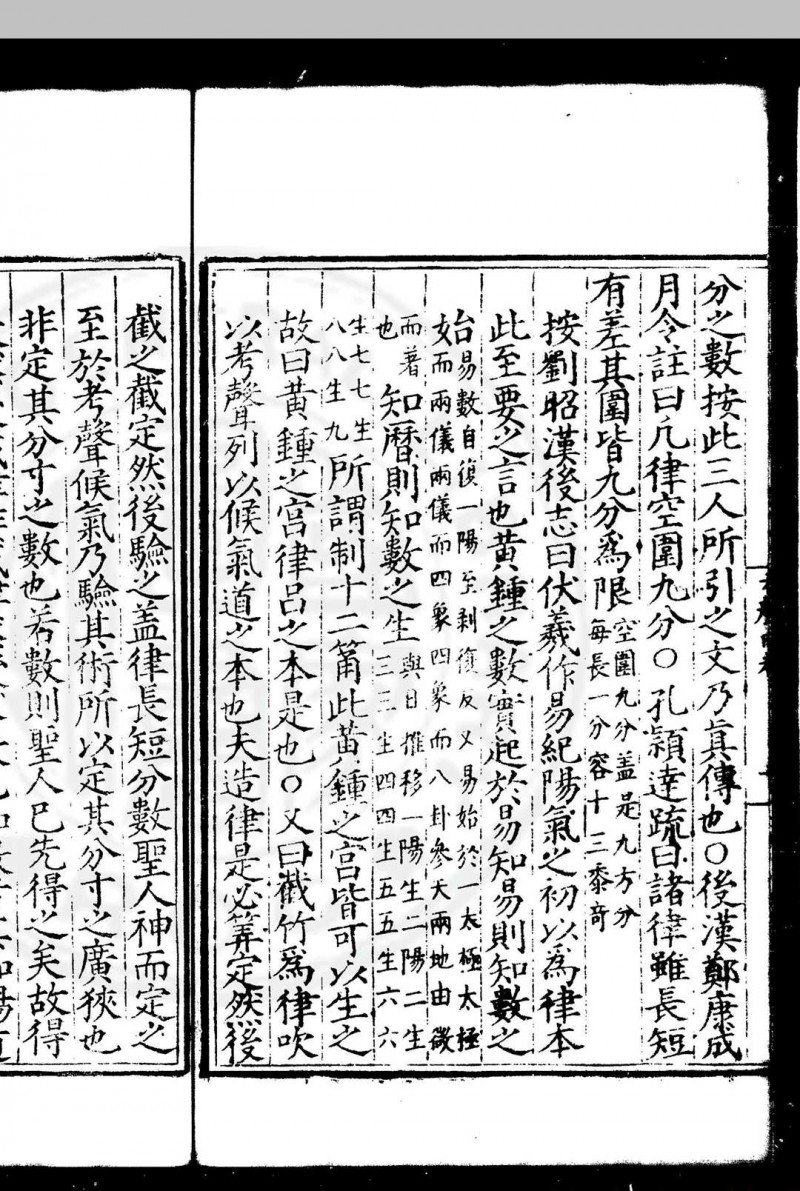 分之數按此三人所引之文乃眞傳也○後漢鄭康成
月令註曰凡律空圍九分○孔頴達疏曰諸律雖長短
有差其圍皆九分爲限空圍九分盖是九方分每長一分容十三黍竒
按劉昭漢後志曰伏羲作易紀陽氣之初以爲律本
此至要之言也黃鍾之數實起於易知易則知數之
始易數自復一陽至剥復反又易始於一太極太極始而兩儀兩儀而四象四象而八卦參天兩地由微
而著也知曆則知數之生與日推移一陽生二陽二生三三生四四生五五生六六
生七七生八八生九所謂制十二筩此黃鍾之宮皆可以生之
故曰黃鍾之宮律呂之本是也○又曰截竹爲律吹
以考聲列以候氣道之本也夫造律是必筭定然後
截之截定然後驗之盖律長短分數聖人神而定之
至於考聲候氣乃驗其術所以定其分寸之廣狹也
非定其分寸之數也若數則聖人已先得之矣故得